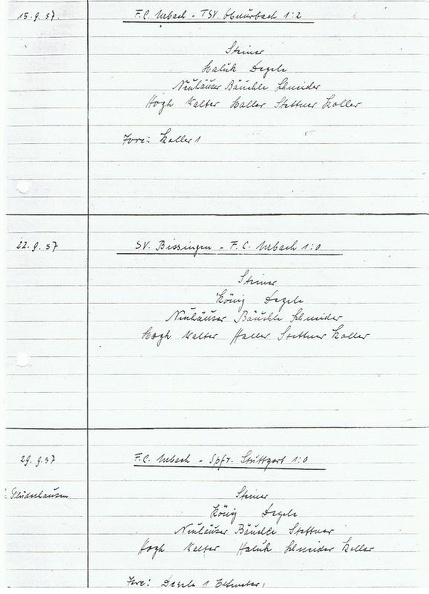 15.9.57 F.C. Urbach - TSV. Oberurbach 1:2
Steiner
Haluk Degele
Neuhäuser Bäuchle Schneider
Hogh Walter Haller Stettner Koller
Tore: Koller 1
22.9.57 SV. Bissingen - F.C. Urbach 1:0
Steiner
König Degele
Neuhäuser Bäuchle Schneider
Hogh Walter Haller Stettner Koller
29.9.57 F.C. Urbach - Spfr. Stuttgart 1:0
Plüderhausen Steiner
König Degele
Neuhäuser Bäuchle Stettner
Hogh Walter Haluk Schneider Koller
Tore: Degele 1 Elfmeter